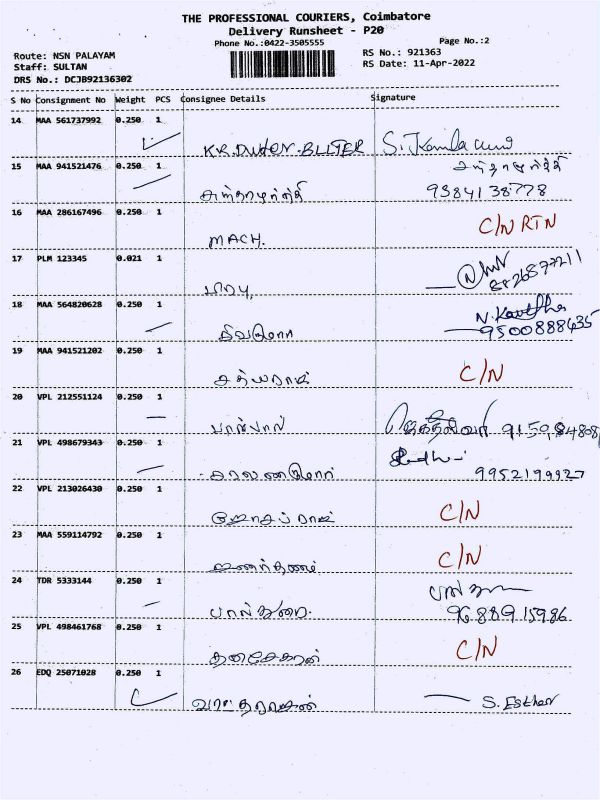 THE PROFESSIONAL COURIERS, Coimbatore
Delivery Runsheet - P20
Phone No.:0422-3505555
Page No.:2
Route: NSN PALAYAM
RS No.: 921363
Staff: SULTAN
RS Date: 11-Apr-2022
DRS No.: DCJB92136302
S No Consignment No Weight PCS Consignee Details Signature
14 MAA 561737992 0.250 1
15 MAA 941521476 0.250 1
9384138778
16 MAA 286167496 0.250 1
MACH. C/N RTN
17 PLM 123345 0.021 1
பிரபு
18 MAA 564820628 0.250 1
9500888435
19 MAA 941521202 0.250 1
சத்யராஜ் C/N
20 VPL 212551124 0.250 1
பால்பால்
21 VPL 498679343 0.250 1
9952199927
22 VPL 213026430 0.250 1
ஜோசப் ராஜ் C/N
23 MAA 559114792 0.250 1
C/N
24 TDR 5333144 0.250 1
பால்துரை. 9688915986
25 VPL 498461768 0.250 1
தனசேகரன் C/N
26 EDQ 25071028 0.250 1
S. Esther